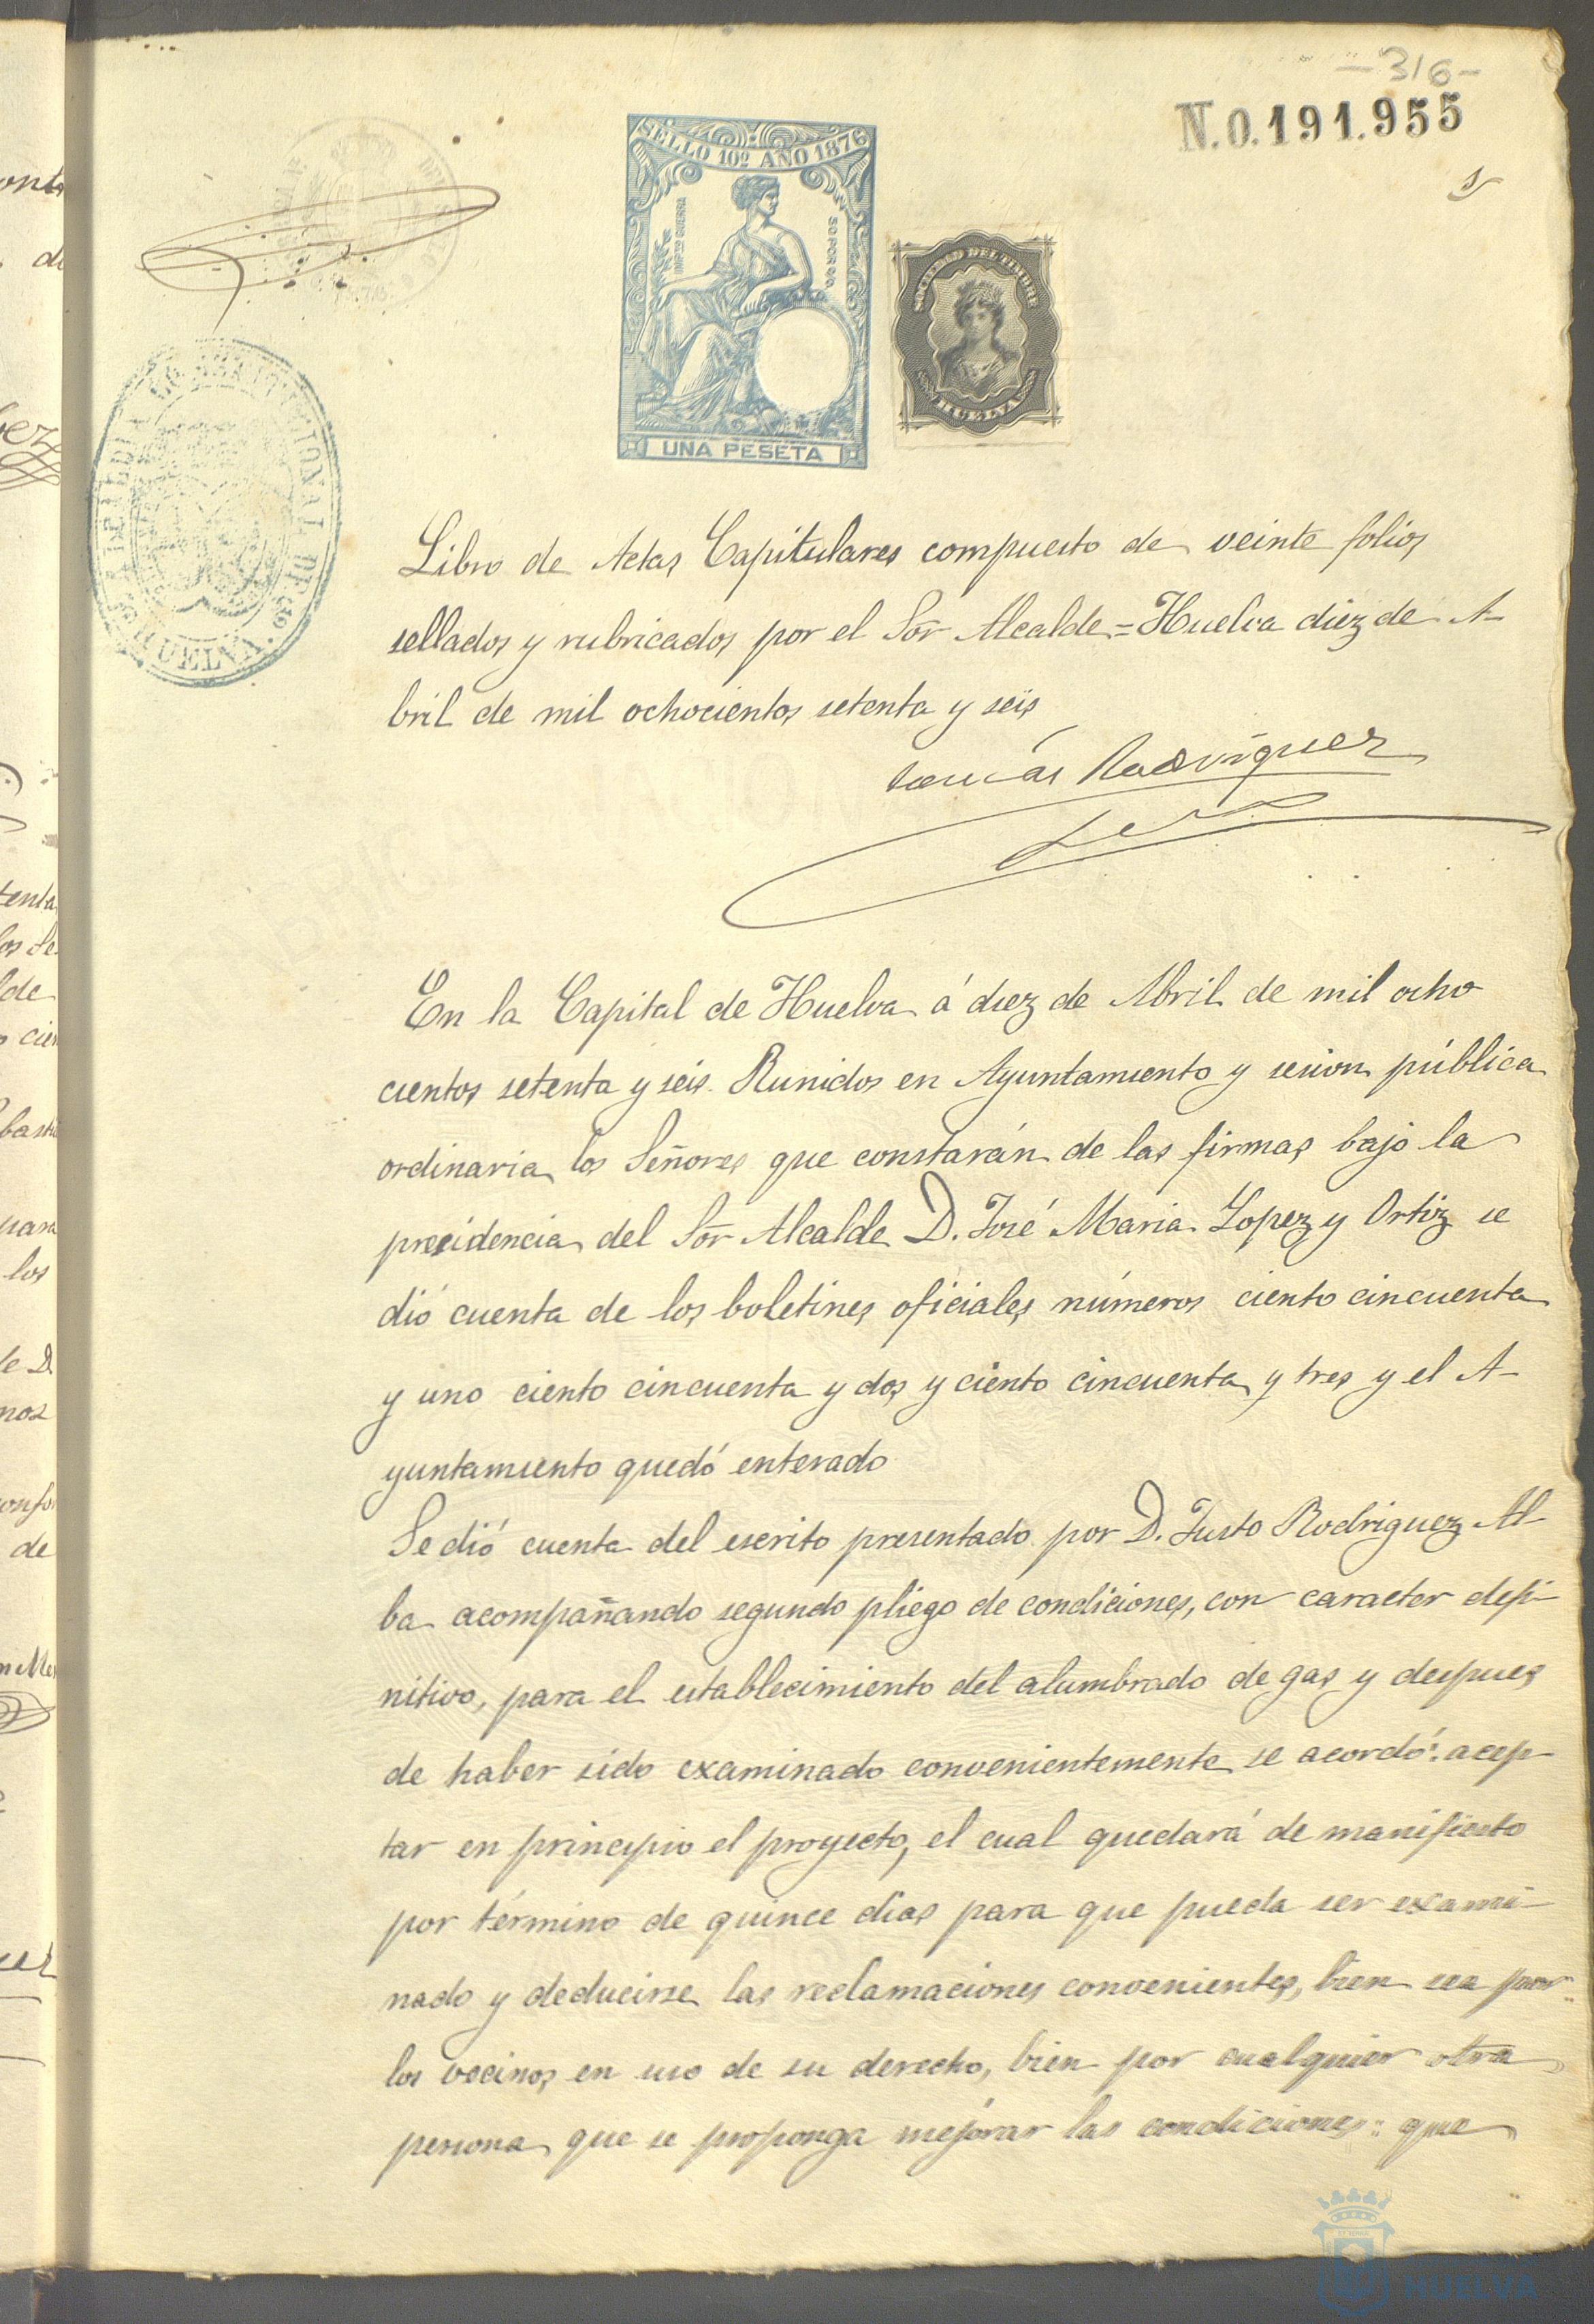 -316-
N.0.191.955
SELLO 10º AÑO 1876
IMPTO GUERRA
50 POR 0/0
UNA PESETA
SOCIEDAD DEL TIMBRE
HUELVA
ALCALDIA CONSTITUCIONAL DE
HUELVA
Libro de Actas Capitulares compuesto de veinte folios
sellados y rubricados por el Sor Alcalde = Huelva diez de A-
bril de mil ochocientos setenta y seis
Tomás Rodriguez
En la Capital de Huelva á diez de Abril de mil ocho
cientos setenta y seis. Runidos en Ayuntamiento y sesion pública
ordinaria los Señores que constarán de las firmas bajo la
presidencia del Sor Alcalde D. José Maria Lopez y Ortiz se
dió cuenta de los boletines oficiales números ciento cincuenta
y uno ciento cincuenta y dos y ciento cincuenta y tres y el A-
yuntamiento quedó enterado
Se dió cuenta del escrito presentado por D. Justo Rodriguez Al-
ba acompañando segundo pliego de condiciones, con caracter defi-
nitivo, para el establecimiento del alumbrado de gas y despues
de haber sido examinado convenientemente se acordó: acep-
tar en principio el proyecto, el cual quedará de manifiesto
por término de quince dias para que pueda ser exami-
nado y deducirse las reclamaciones convenientes, bien sea por
los vecinos en uso de su derecho, bien por cualquier otra
persona que se proponga mejorar las condiciones: que
HUELVA